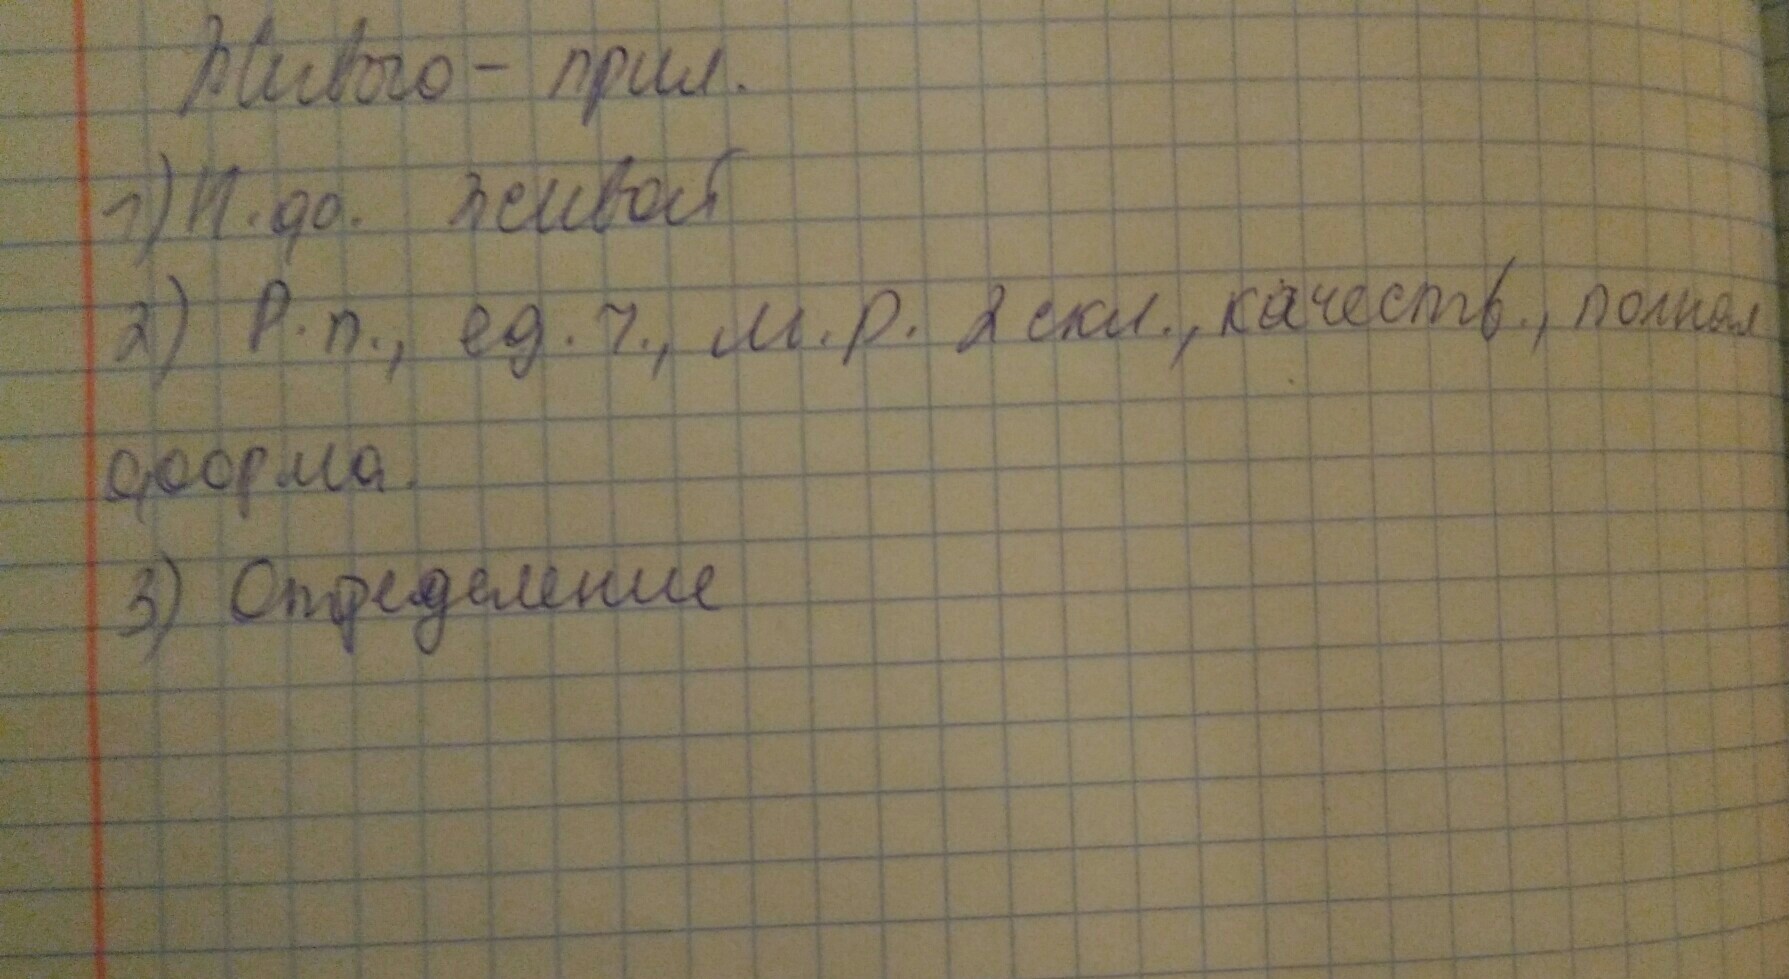 Живого - прил.
1) Н.фо. живой
2) Р.п., ед.ч., м.р. 2 скл., качеств., полная
форма.
3) Определение